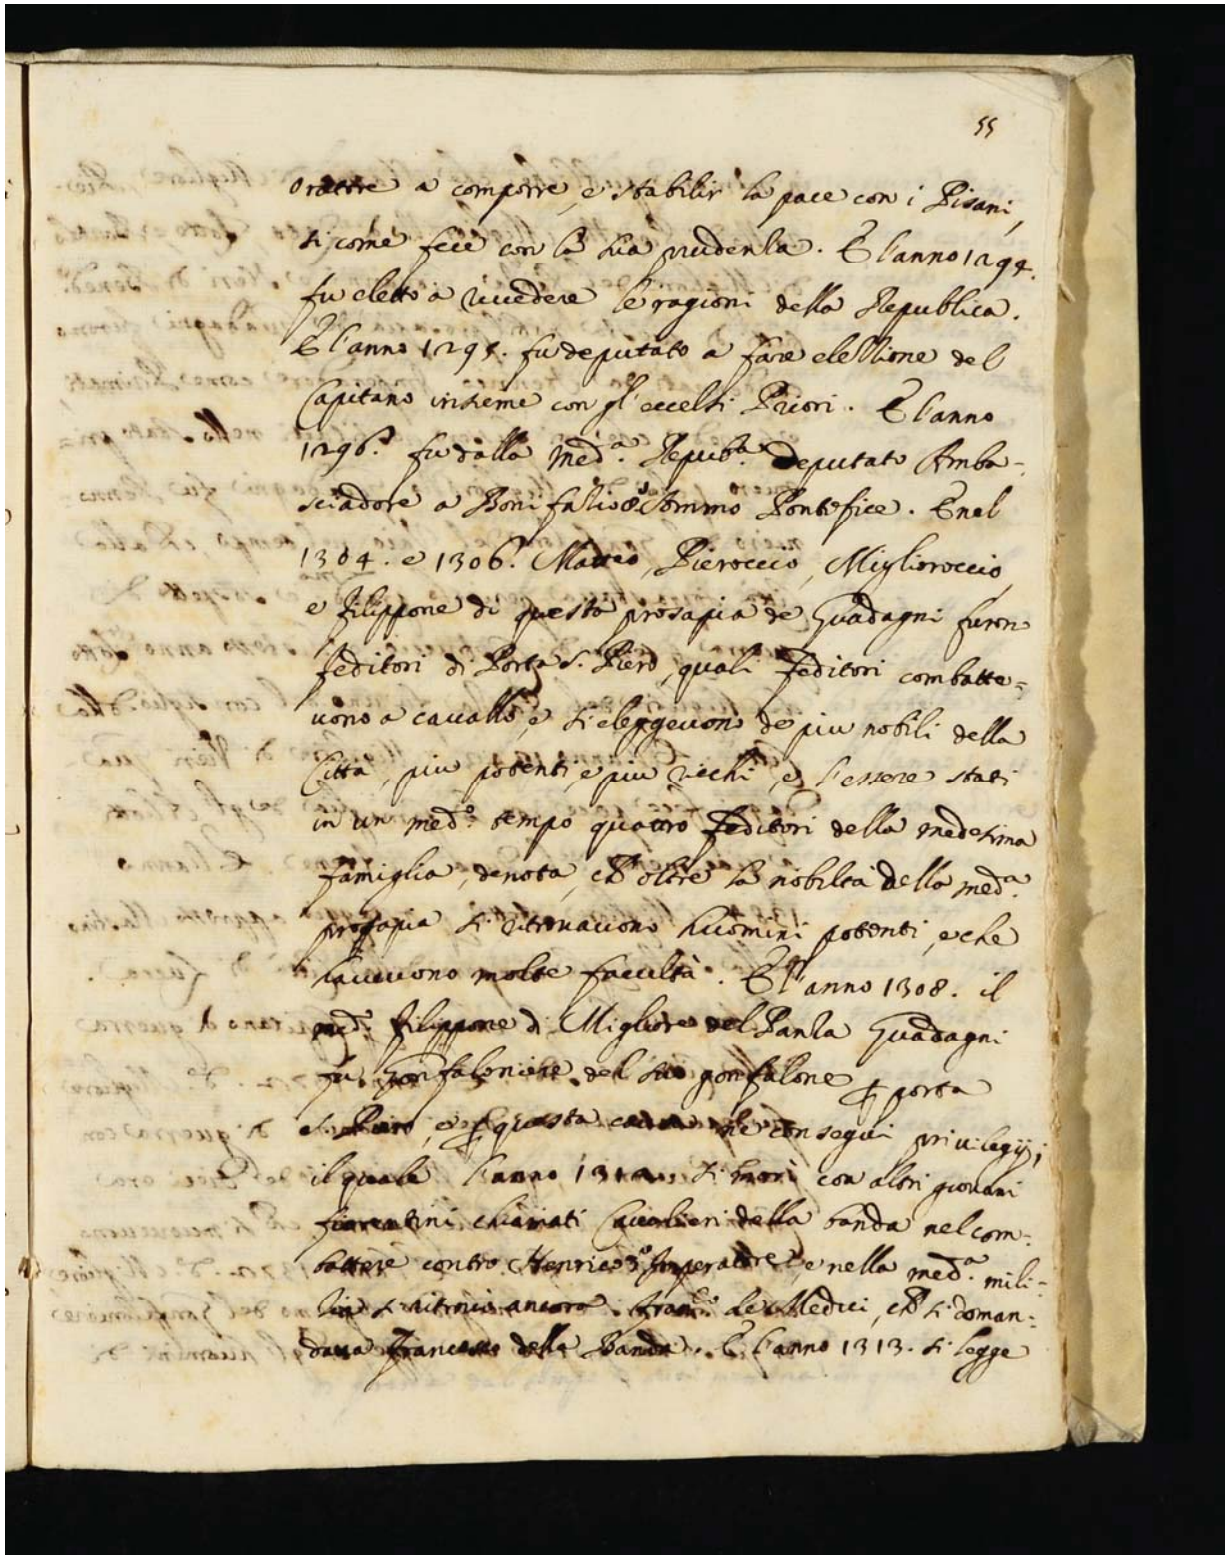 55
oratore a comporre, e stabilir la pace con i Pisani,
sicome fece con la sua prudenza. E l'anno 1294.
fu eletto a riuedere le ragioni della Republica.
E l'anno 1295. fu deputato a fare elezzione del
Capitano insieme con gl'eccelsi Priori. E l'anno
1296. fu dalla med.ª Repub.ª deputato Amba=
sciadore a Bonifazio 8.º Sommo Pontefice. E nel
1304. e 1306. Matteo, Pieroccio, Miglioroccio,
e Filippone di questa prosapia de Guadagni furon
feditori di Porta S. Piero, quali feditori combatte=
uono a cauallo, e si eleggeuono de piu nobili della
Città, piu potenti, e piu ricchi, e l'essere stati
in un med.º tempo quattro feditori della medesima
famiglia, denota, ch oltre la nobiltà della med.ª
prosapia si ritrouauono huomini potenti, e che
haueuono molte facultà. E l'anno 1308. il
med.º Filippone di Migliore del Zanla Guadagni
fu Gonfaloniere del suo gonfalone p porta
S. Piero, e p questa causa ne conseguì priuilegij;
il quale l'anno 1312. si morì con altri giouani
fiorentini chiamati Caualieri della banda nel com=
battere contro Henrico 7.º Imperatore, e nella med.ª mili=
zia si ritrouò ancora Fran.co de Medici, ch si doman=
daua Francesco della Banda. E l'anno 1313. si legge